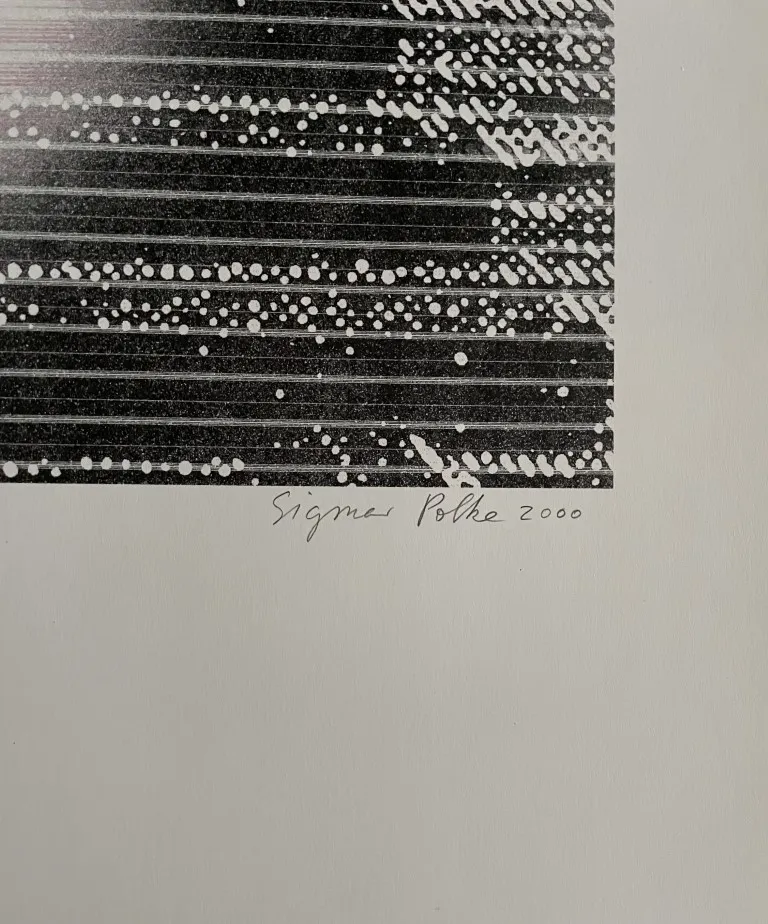 Sigmar Polke 2000